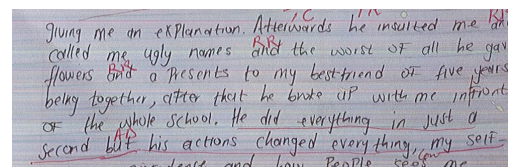 giving me an explanation. Afterwards he insulted me and
called me ugly names and the worst of all he gav
flowers and a Presents to my bestfriend of five years
being together, after that he broke up with me infront
of the whole school. He did everything in just a
second but his actions changed everything, my self-
and how People